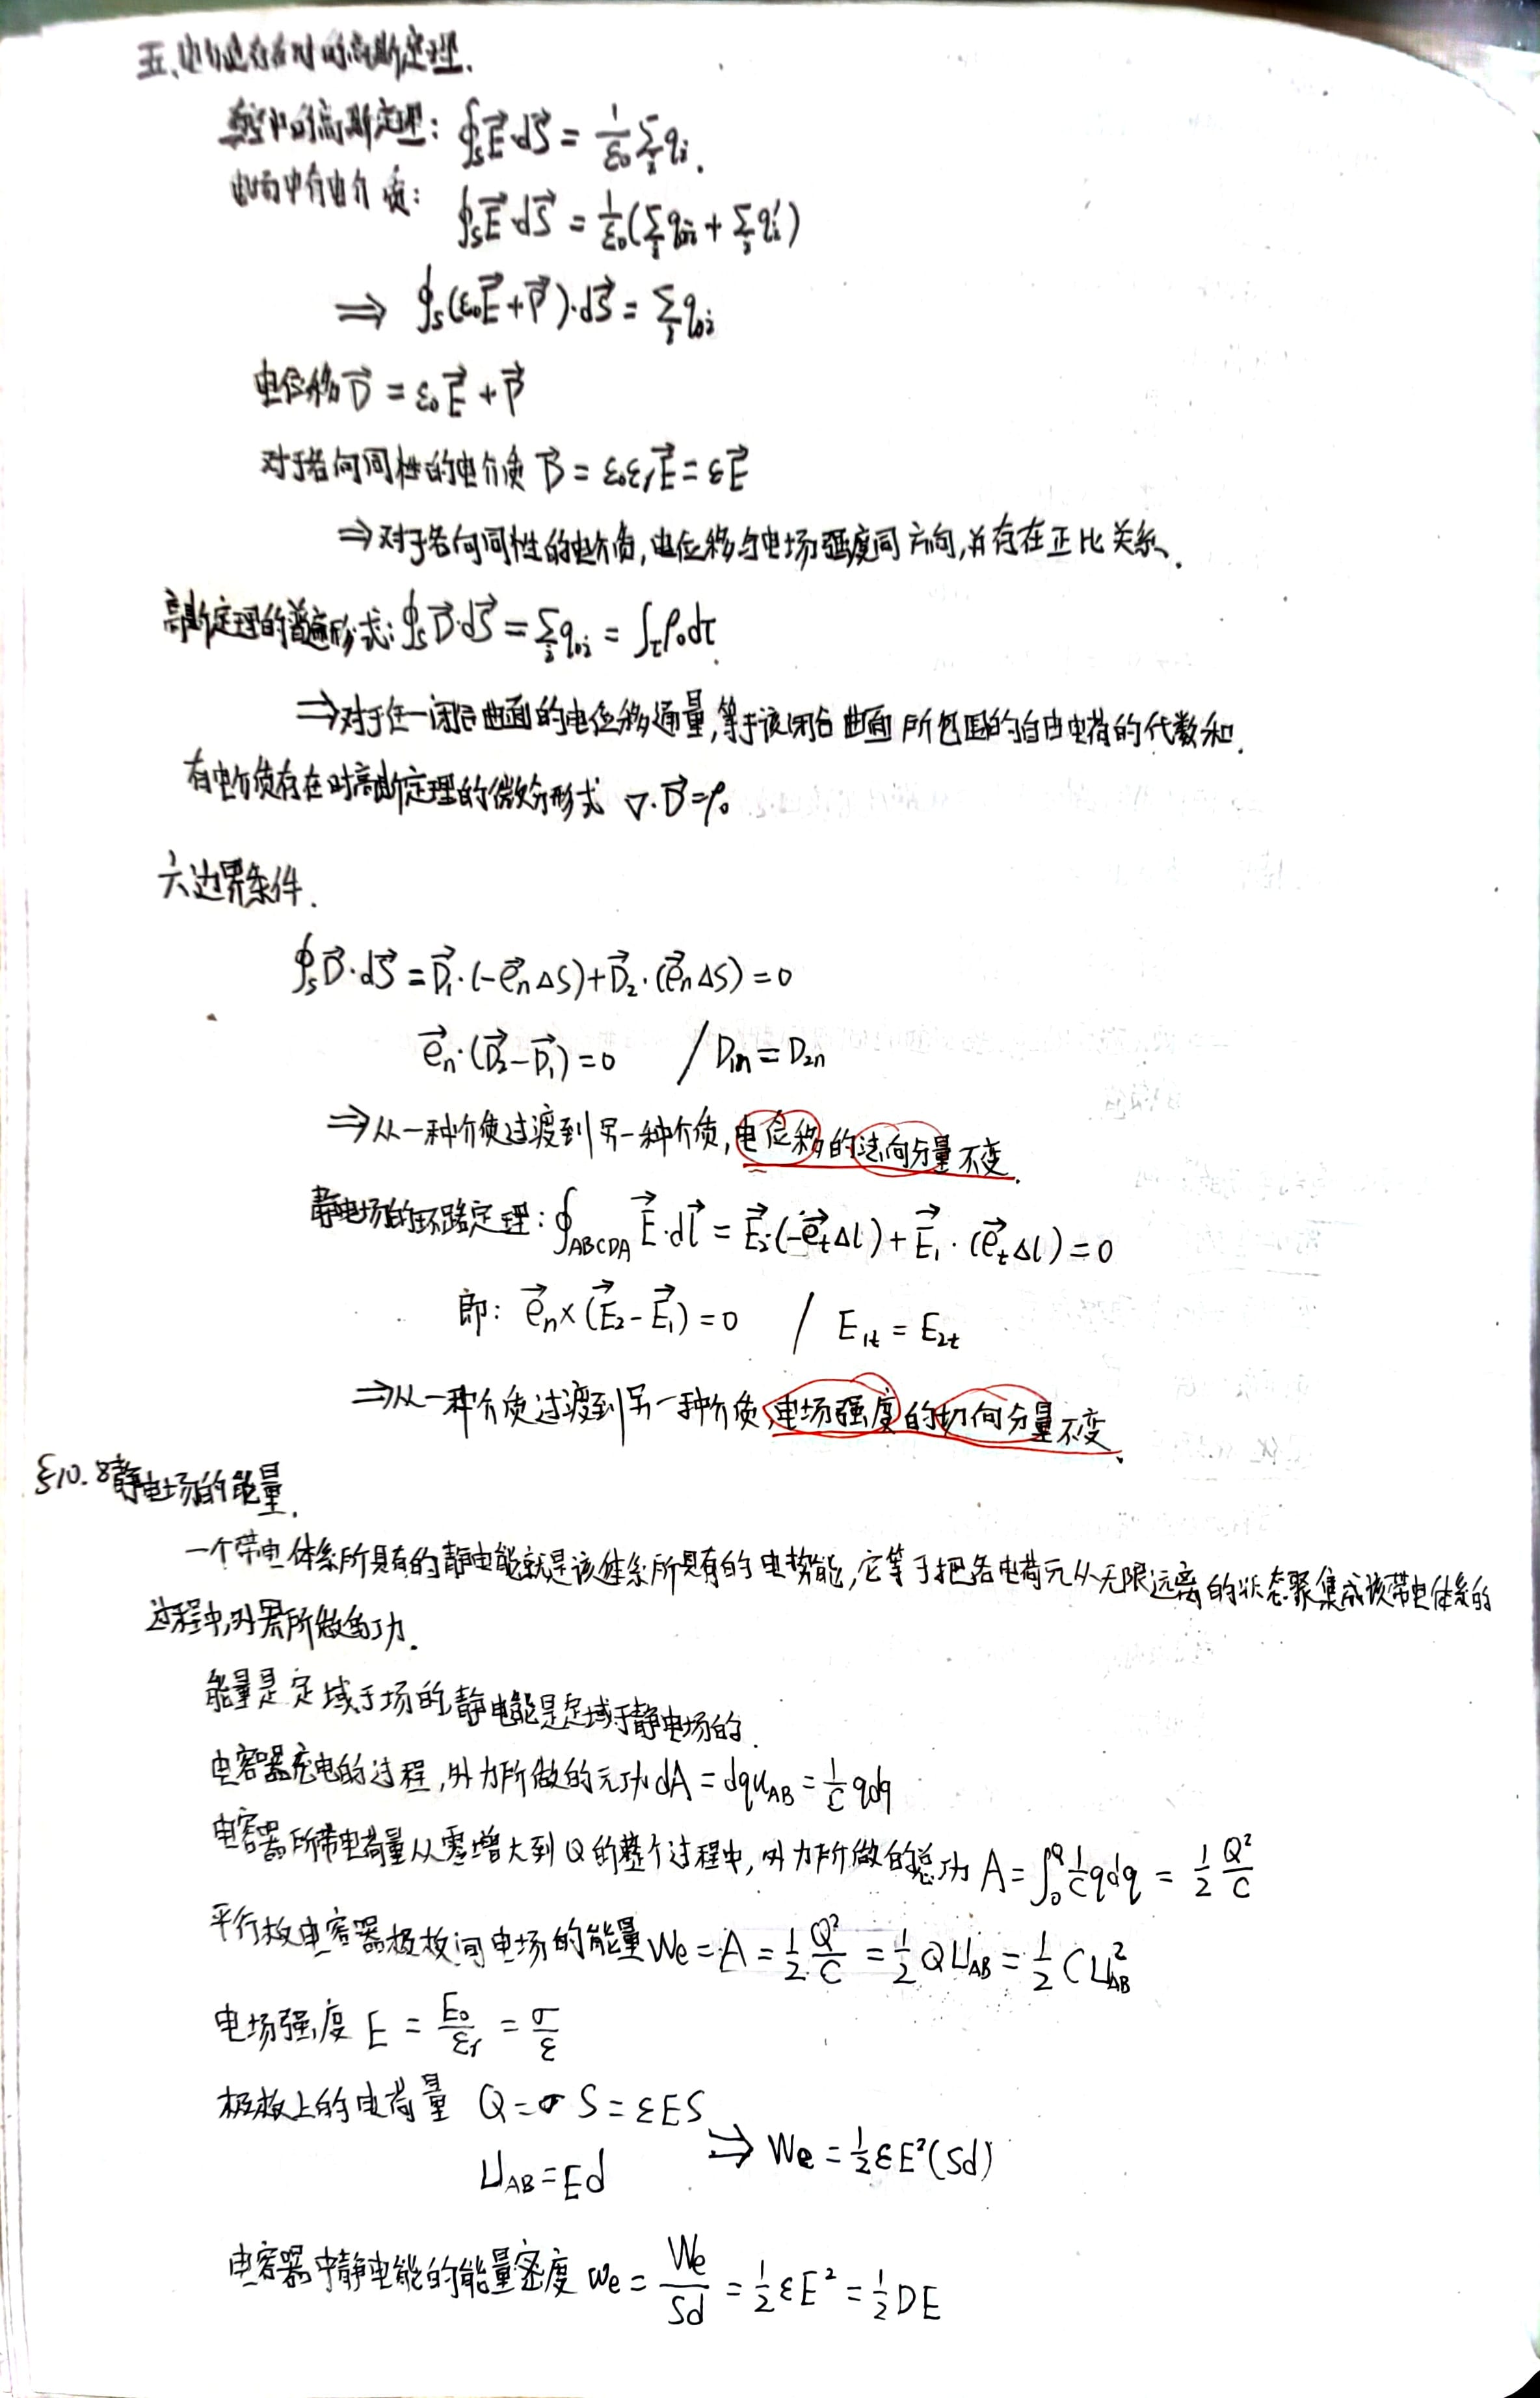 五、电介质存在时的高斯定理.
真空中的高斯定理: ∮_S E⃗·dS⃗ = 1/ε₀ Σ_i q_i.
电场中有电介质: ∮_S E⃗·dS⃗ = 1/ε₀ (Σ_i q_0i + Σ_i q_i')
⇒ ∮_S (ε₀E⃗ + P⃗)·dS⃗ = Σ_i q_0i
电位移 D⃗ = ε₀E⃗ + P⃗
对于各向同性的电介质 D⃗ = ε₀ε_rE⃗ = εE⃗
⇒ 对于各向同性的电介质, 电位移与电场强度同方向, 并存在正比关系.
高斯定理的普遍形式: ∮_S D⃗·dS⃗ = Σ_i q_0i = ∫_τ ρ₀dτ.
⇒ 对于任一闭合曲面的电位移通量, 等于该闭合曲面所包围的自由电荷的代数和.
有电介质存在时高斯定理的微分形式 ∇·D⃗ = ρ₀
六、边界条件.
∮_S D⃗·dS⃗ = D⃗₁·(-e⃗_nΔS) + D⃗₂·(e⃗_nΔS) = 0
e⃗_n·(D⃗₂ - D⃗₁) = 0 / D_1n = D_2n
⇒ 从一种介质过渡到另一种介质, 电位移的法向分量不变.
静电场的环路定理: ∮_ABCDA E⃗·dl⃗ = E⃗₂·(-e⃗_tΔl) + E⃗₁·(e⃗_tΔl) = 0
即: e⃗_n×(E⃗₂ - E⃗₁) = 0 / E_1t = E_2t
⇒ 从一种介质过渡到另一种介质, 电场强度的切向分量不变.
§10.8 静电场的能量.
一个带电体系所具有的静电能就是该体系所具有的电势能, 它等于把各电荷元从无限远离的状态聚集成该带电体系的
过程中, 外界所做的功.
能量是定域于场的, 静电能是定域于静电场的.
电容器充电的过程, 外力所做的元功 dA = dq u_AB = 1/C qdq
电容器所带电荷量从零增大到Q的整个过程中, 外力所做的总功 A = ∫₀^Q 1/C qdq = 1/2 Q²/C
平行板电容器极板间电场的能量 We = A = 1/2 Q²/C = 1/2 QU_AB = 1/2 CU_AB²
电场强度 E = E₀/ε_r = σ/ε
极板上的电荷量 Q = σS = εES
U_AB = Ed ⇒ We = 1/2 εE²(Sd)
电容器中静电能的能量密度 we = We/Sd = 1/2 εE² = 1/2 DE